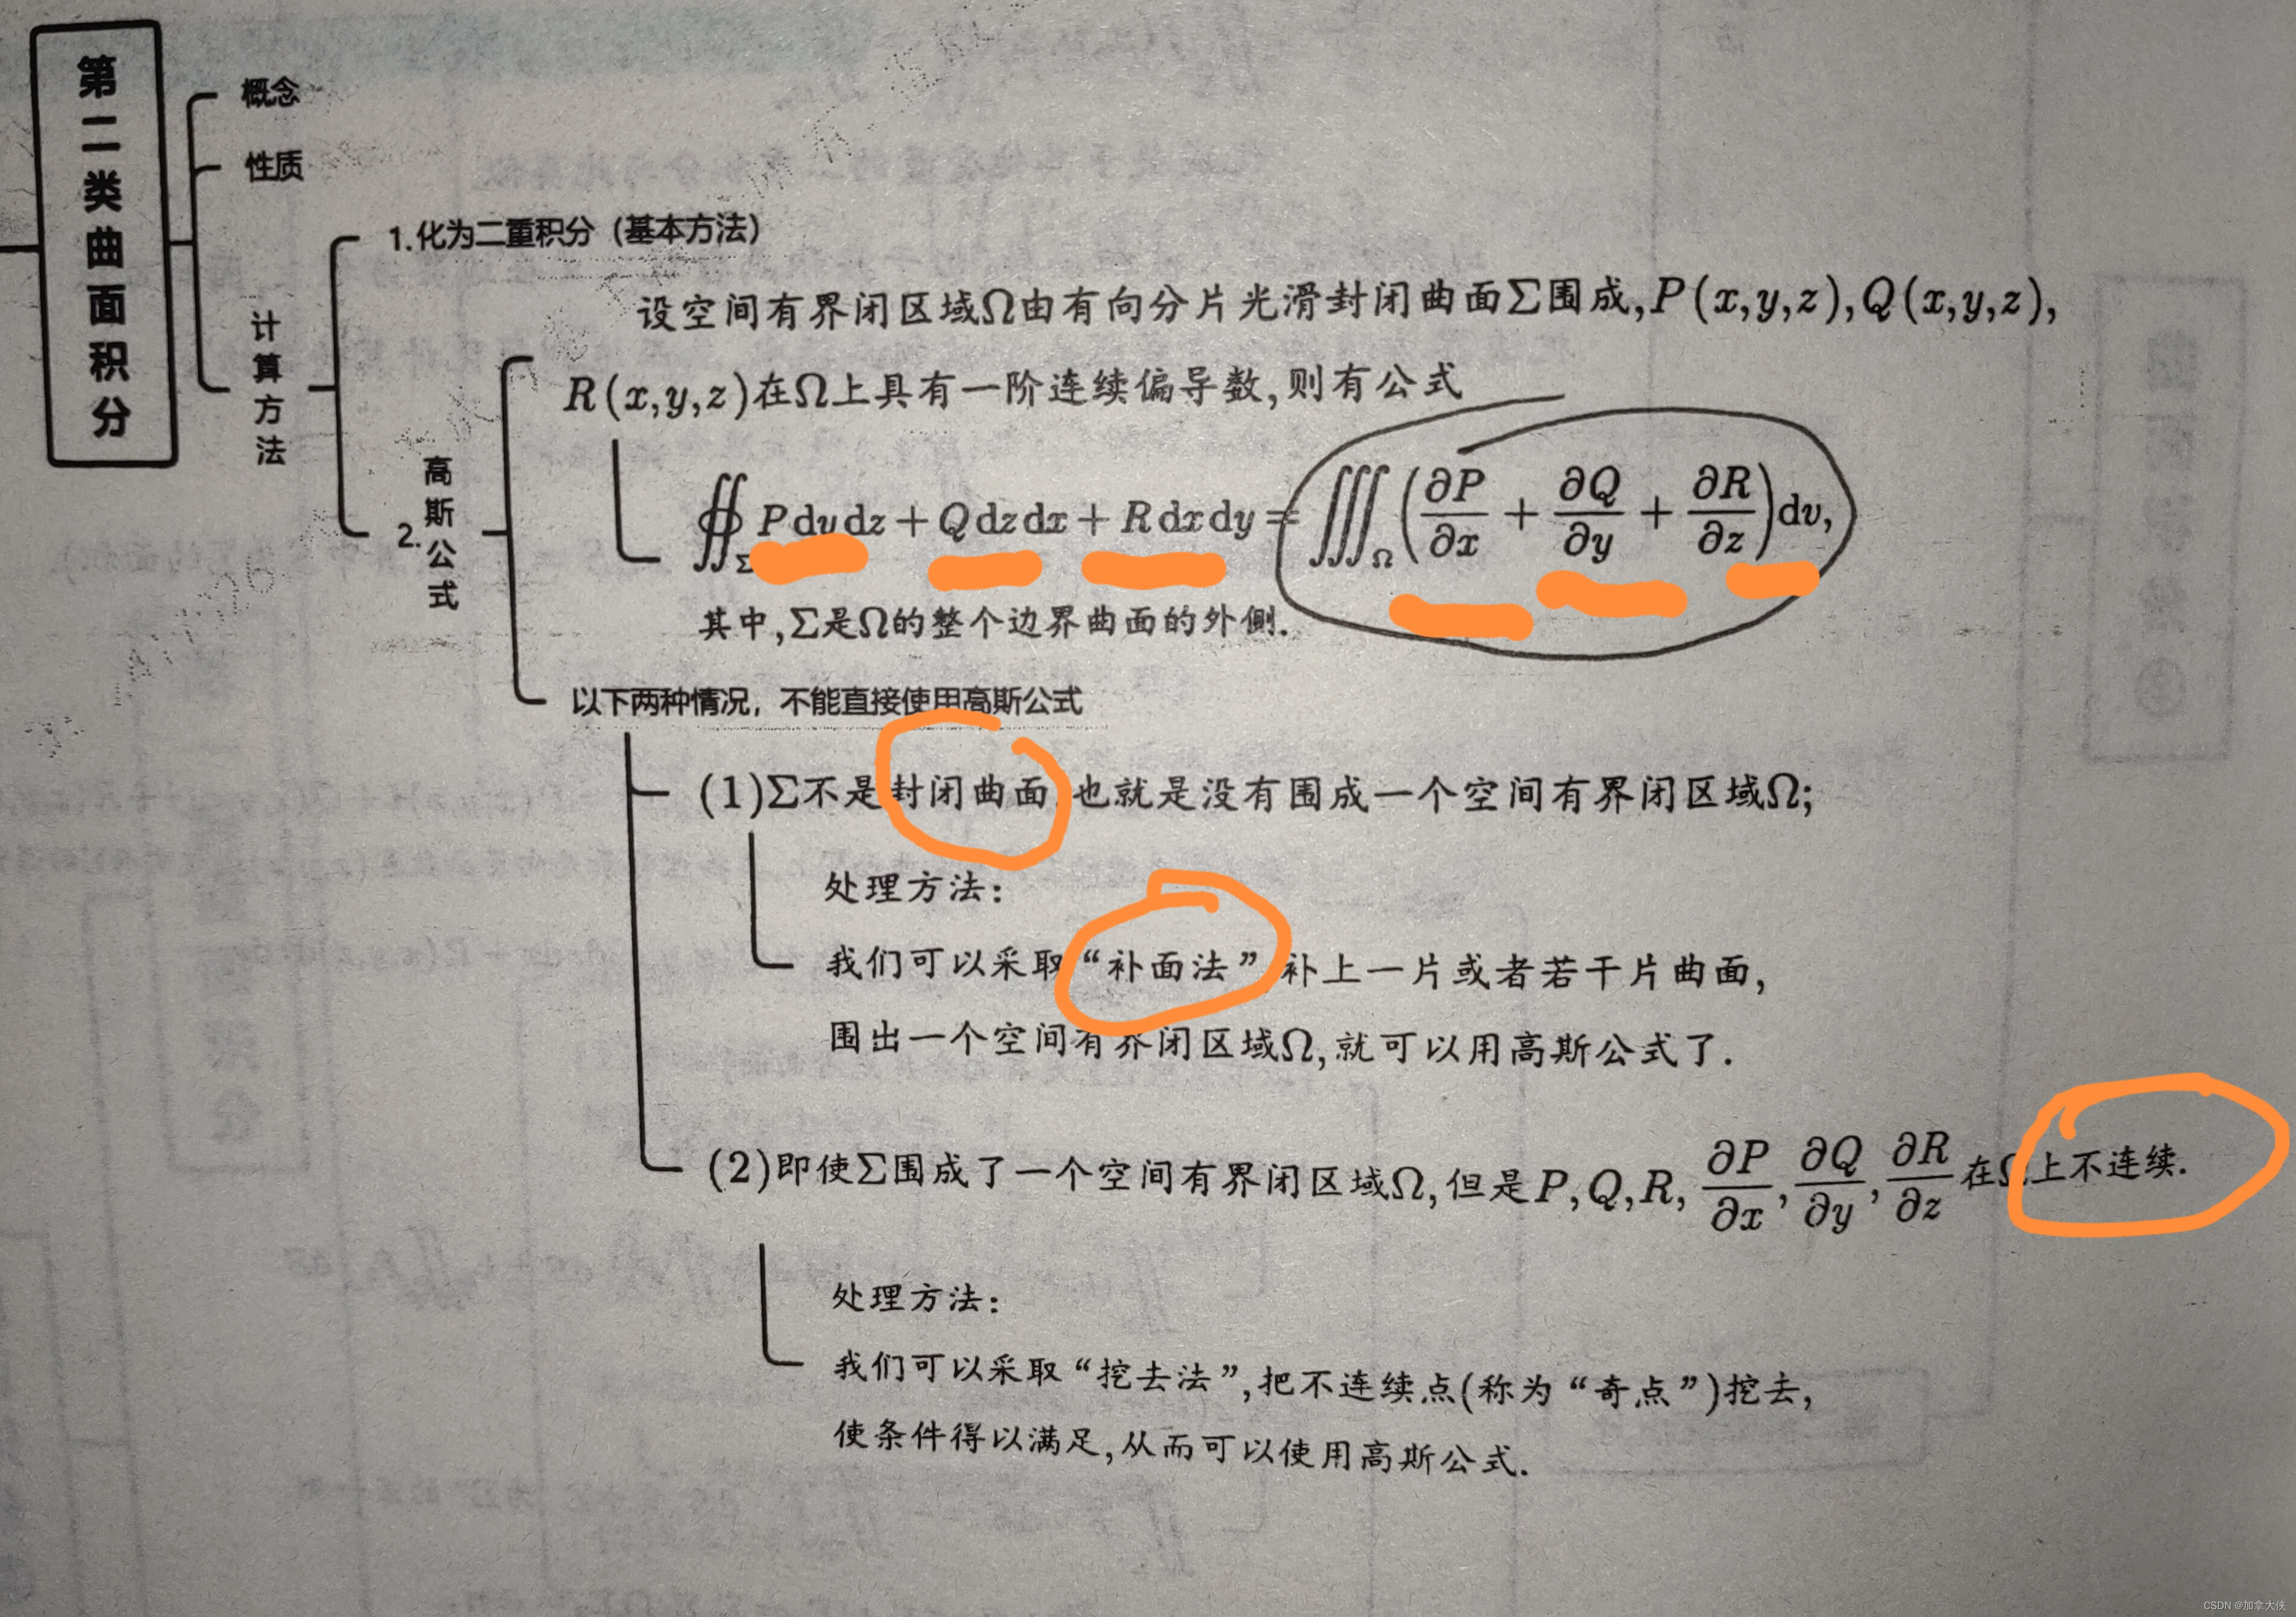 第二类曲面积分
概念
性质
计算方法
1.化为二重积分（基本方法）
2.高斯公式
设空间有界闭区域Ω由有向分片光滑封闭曲面Σ围成,P(x,y,z),Q(x,y,z),
R(x,y,z)在Ω上具有一阶连续偏导数,则有公式
∯_Σ P dy dz + Q dz dx + R dx dy = ∭_Ω (∂P/∂x + ∂Q/∂y + ∂R/∂z) dv,
其中,Σ是Ω的整个边界曲面的外侧.
以下两种情况，不能直接使用高斯公式
(1)Σ不是封闭曲面 也就是没有围成一个空间有界闭区域Ω;
处理方法:
我们可以采取“补面法” 补上一片或者若干片曲面,
围出一个空间有界闭区域Ω,就可以用高斯公式了.
(2)即使Σ围成了一个空间有界闭区域Ω,但是P,Q,R, ∂P/∂x, ∂Q/∂y, ∂R/∂z 在Ω上不连续.
处理方法:
我们可以采取“挖去法”,把不连续点(称为“奇点”)挖去,
使条件得以满足,从而可以使用高斯公式.
CSDN @加拿大侠